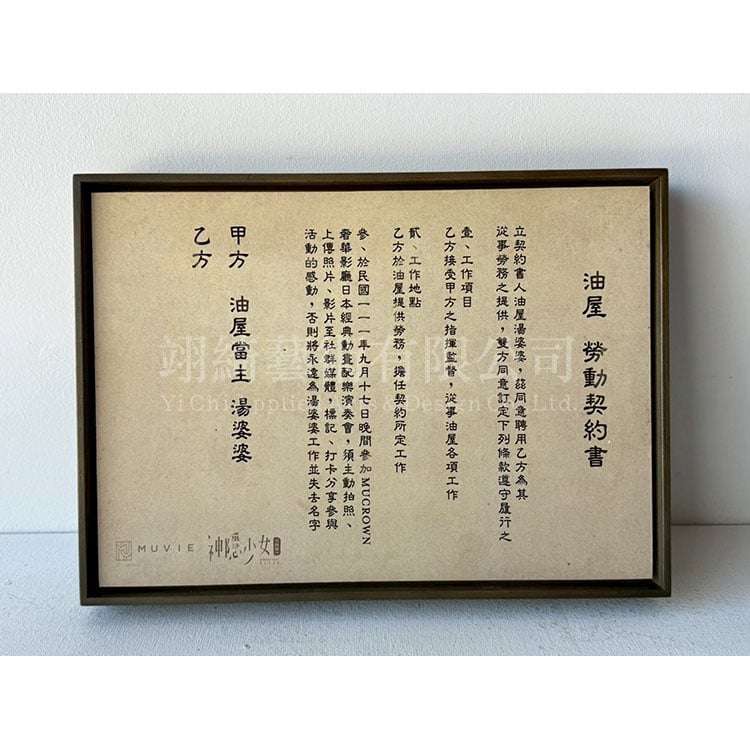 油屋 勞動契約書
立契約書人油屋湯婆婆，茲同意聘用乙方為其
從事勞務之提供，雙方同意訂定下列條款遵守履行之
壹、工作項目
乙方接受甲方之指揮監督，從事油屋各項工作
貳、工作地點
乙方於油屋提供勞務，擔任契約所定工作
參、於民國一一一年九月十七日晚間參加 MUCROWN
奢華影廳日本經典動畫配樂演奏會，須主動拍照、
上傳照片、影片至社群媒體，標記、打卡分享參與
活動的感動，否則將永遠為湯婆婆工作並失去名字
甲方 油屋當主 湯婆婆
乙方
MUVIE 神隱少女
翊綺藝術有限公司
YiChi Applied & Design Co., Ltd.